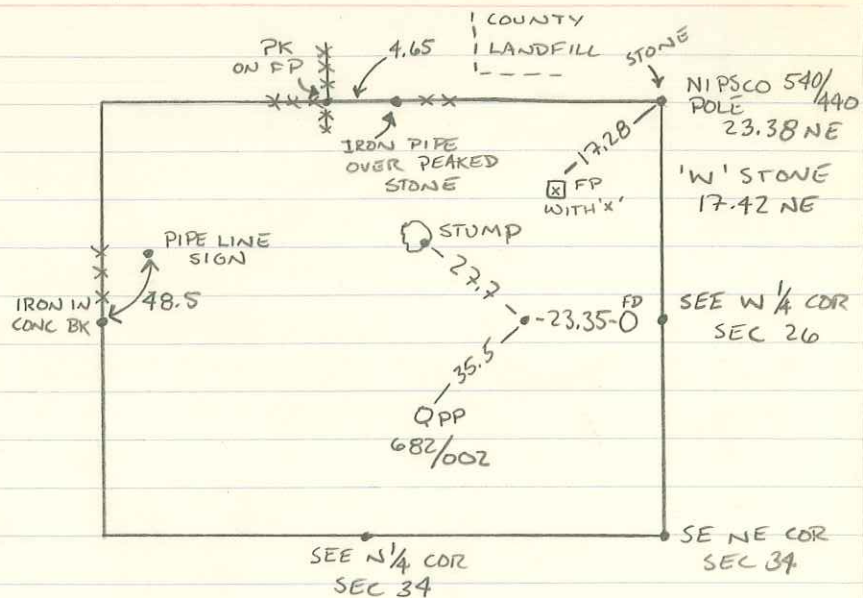 COUNTY
LANDFILL
PK
ON FP
4.65
STONE
NIPSCO 540/440
POLE
23.38 NE
IRON PIPE
OVER PEAKED
STONE
17.28
x FP
WITH 'X'
'W' STONE
17.42 NE
STUMP
PIPE LINE
SIGN
27.7
48.5
IRON IN
CONC BK
-23.35-
FD
SEE W 1/4 COR
SEC 26
35.5
PP
682/002
SEE N 1/4 COR
SEC 34
SE NE COR
SEC 34